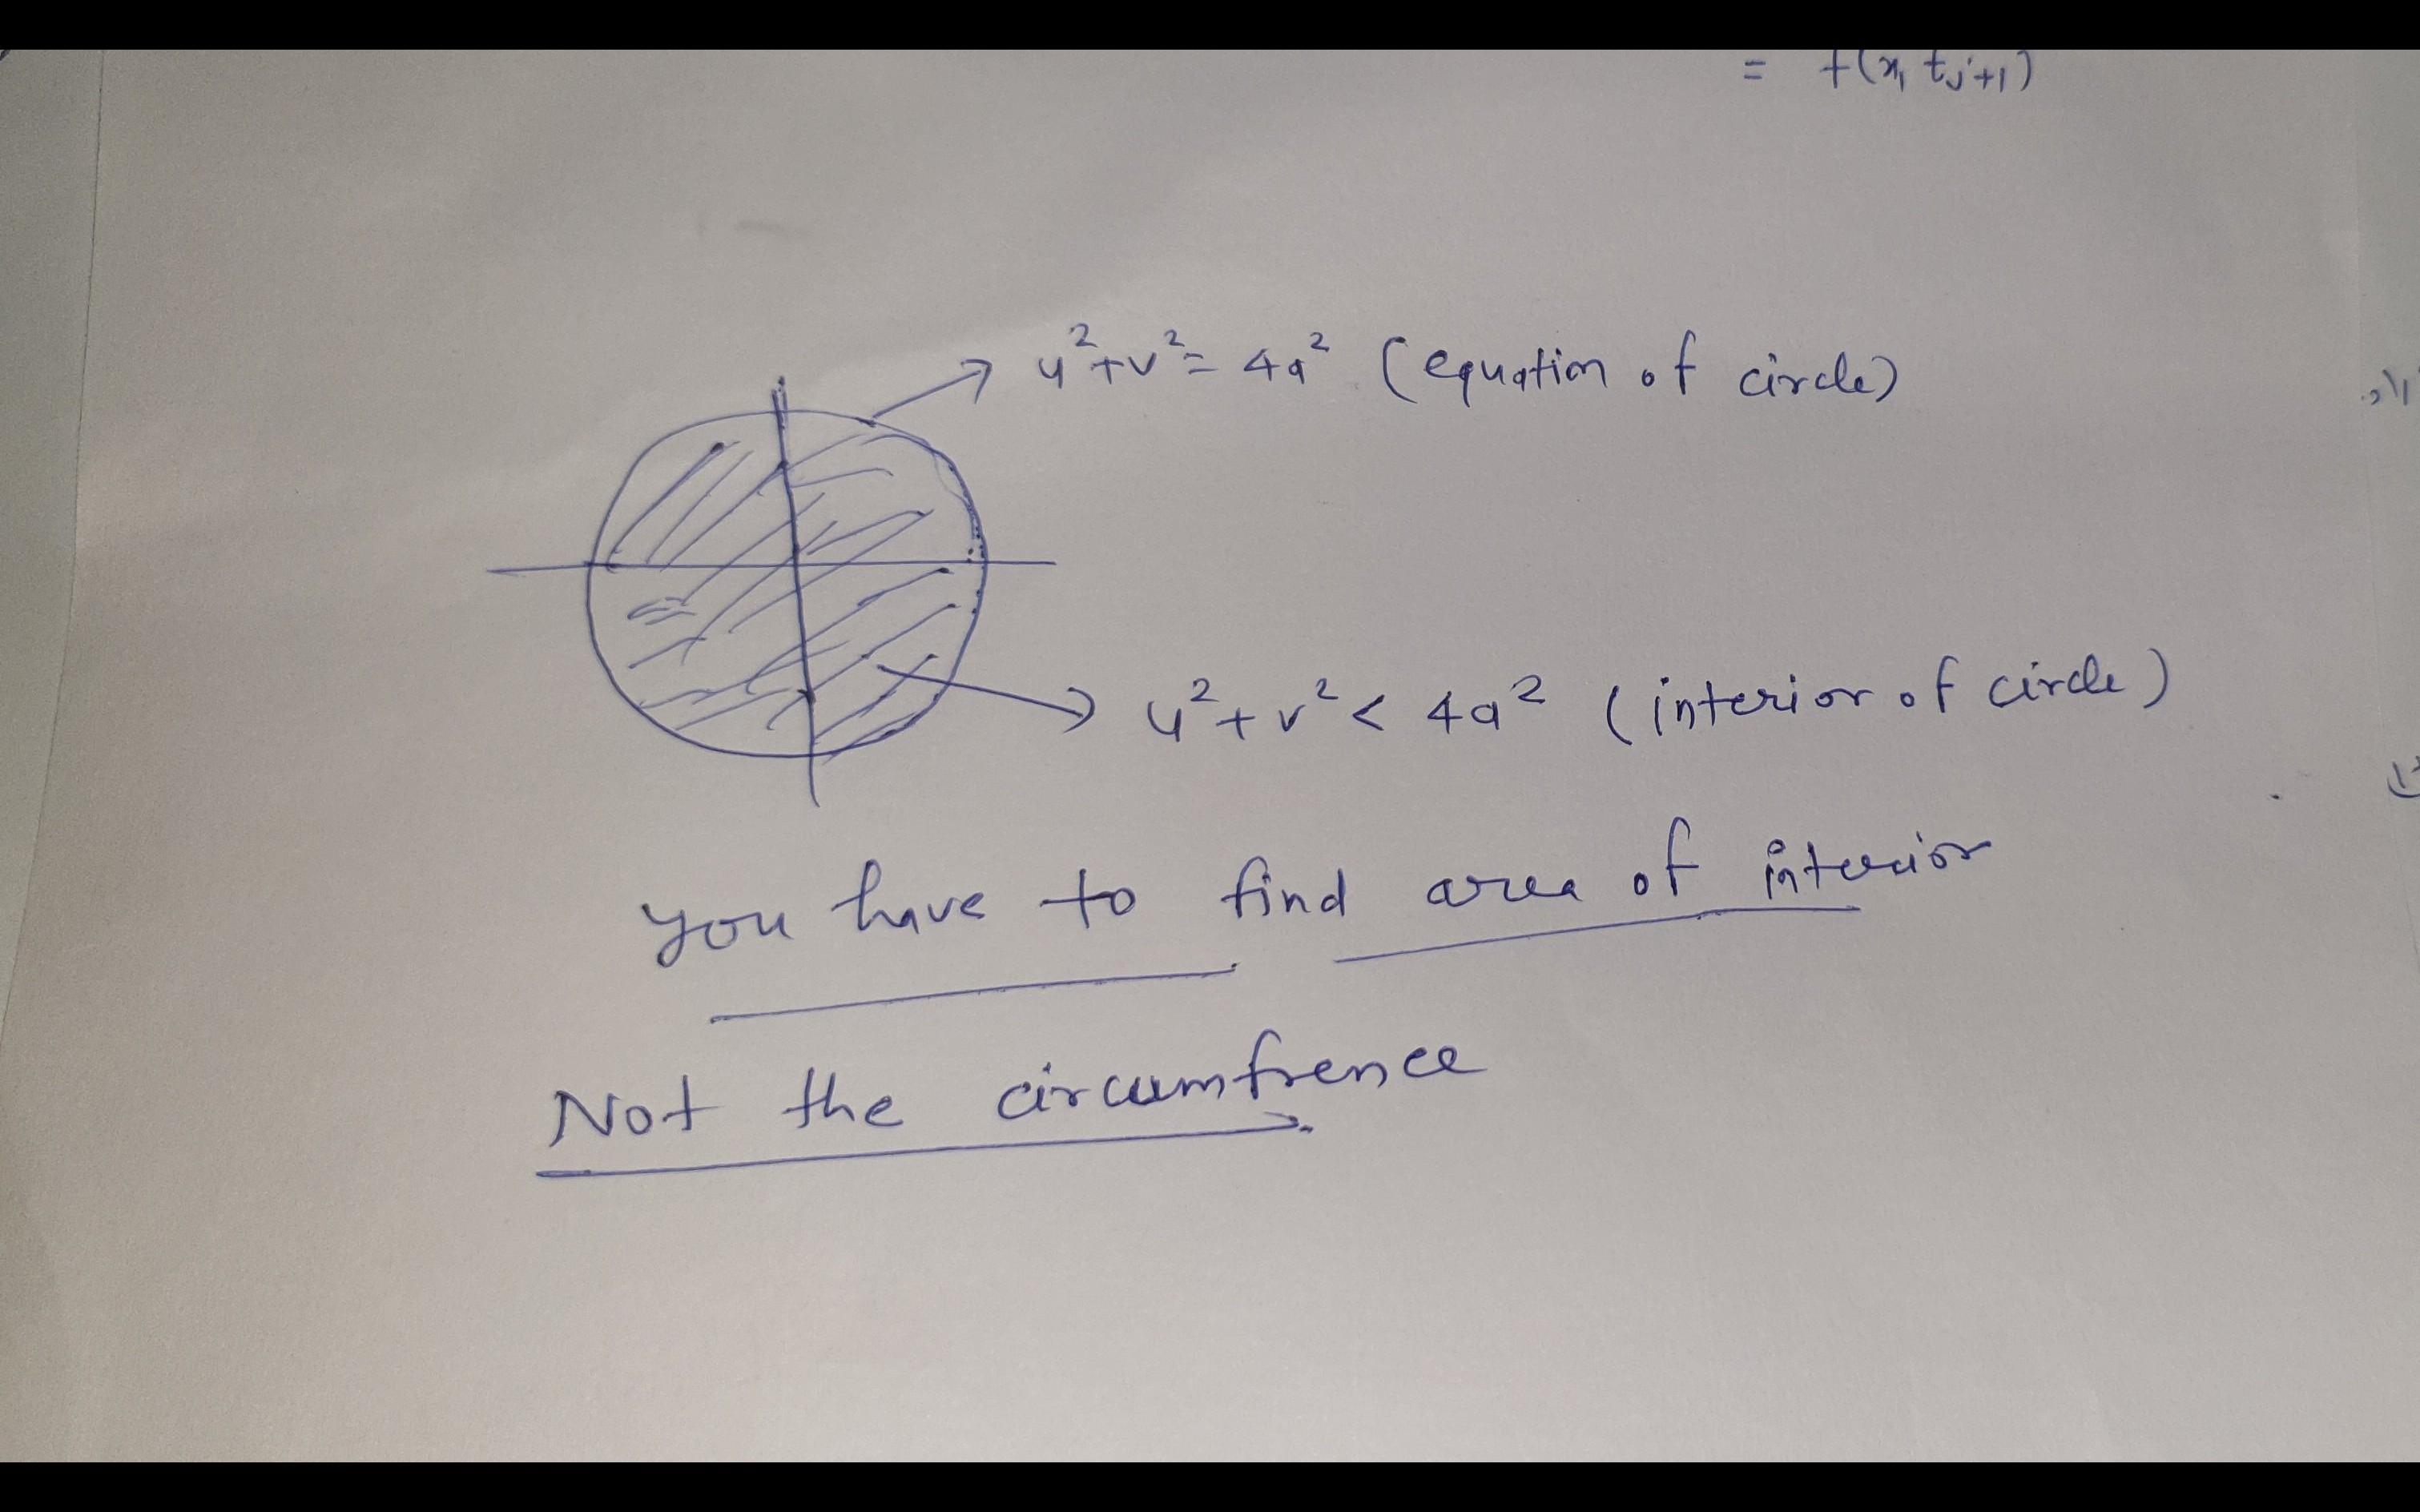 = f(x, tj+1)
u²+v²= 4a² (equation of circle)
u²+v²< 4a² (interior of circle)
you have to find area of interior
Not the circumfrence